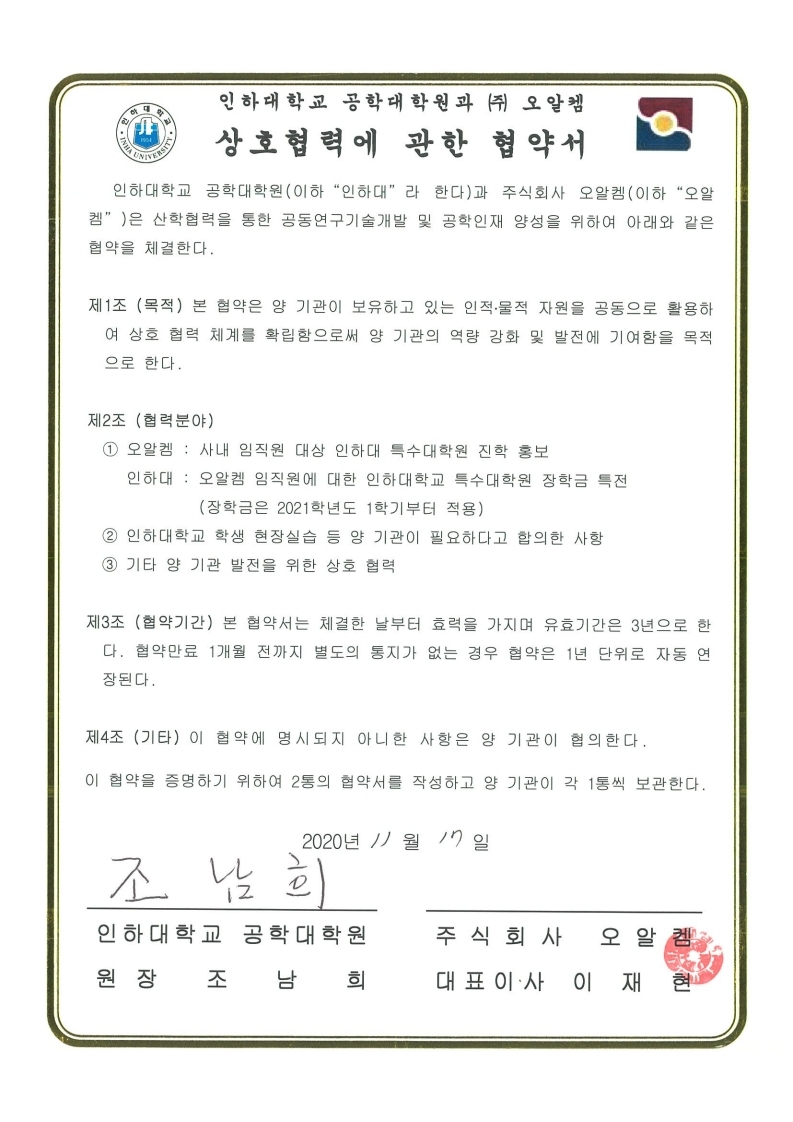 인하대학교 공학대학원과 ㈜ 오알켐
상호협력에 관한 협약서
인하대학교
INHA UNIVERSITY
1954
인하대학교 공학대학원(이하 “인하대” 라 한다)과 주식회사 오알켐(이하 “오알
켐” )은 산학협력을 통한 공동연구기술개발 및 공학인재 양성을 위하여 아래와 같은
협약을 체결한다.
제1조 (목적) 본 협약은 양 기관이 보유하고 있는 인적·물적 자원을 공동으로 활용하
여 상호 협력 체계를 확립함으로써 양 기관의 역량 강화 및 발전에 기여함을 목적
으로 한다.
제2조 (협력분야)
① 오알켐 : 사내 임직원 대상 인하대 특수대학원 진학 홍보
인하대 : 오알켐 임직원에 대한 인하대학교 특수대학원 장학금 특전
(장학금은 2021학년도 1학기부터 적용)
② 인하대학교 학생 현장실습 등 양 기관이 필요하다고 합의한 사항
③ 기타 양 기관 발전을 위한 상호 협력
제3조 (협약기간) 본 협약서는 체결한 날부터 효력을 가지며 유효기간은 3년으로 한
다. 협약만료 1개월 전까지 별도의 통지가 없는 경우 협약은 1년 단위로 자동 연
장된다.
제4조 (기타) 이 협약에 명시되지 아니한 사항은 양 기관이 협의한다.
이 협약을 증명하기 위하여 2통의 협약서를 작성하고 양 기관이 각 1통씩 보관한다.
2020년 11 월 17 일
조 남 희
인하대학교 공학대학원
원 장 조 남 희
주 식 회 사 오 알 켐
대표이사 이 재 현